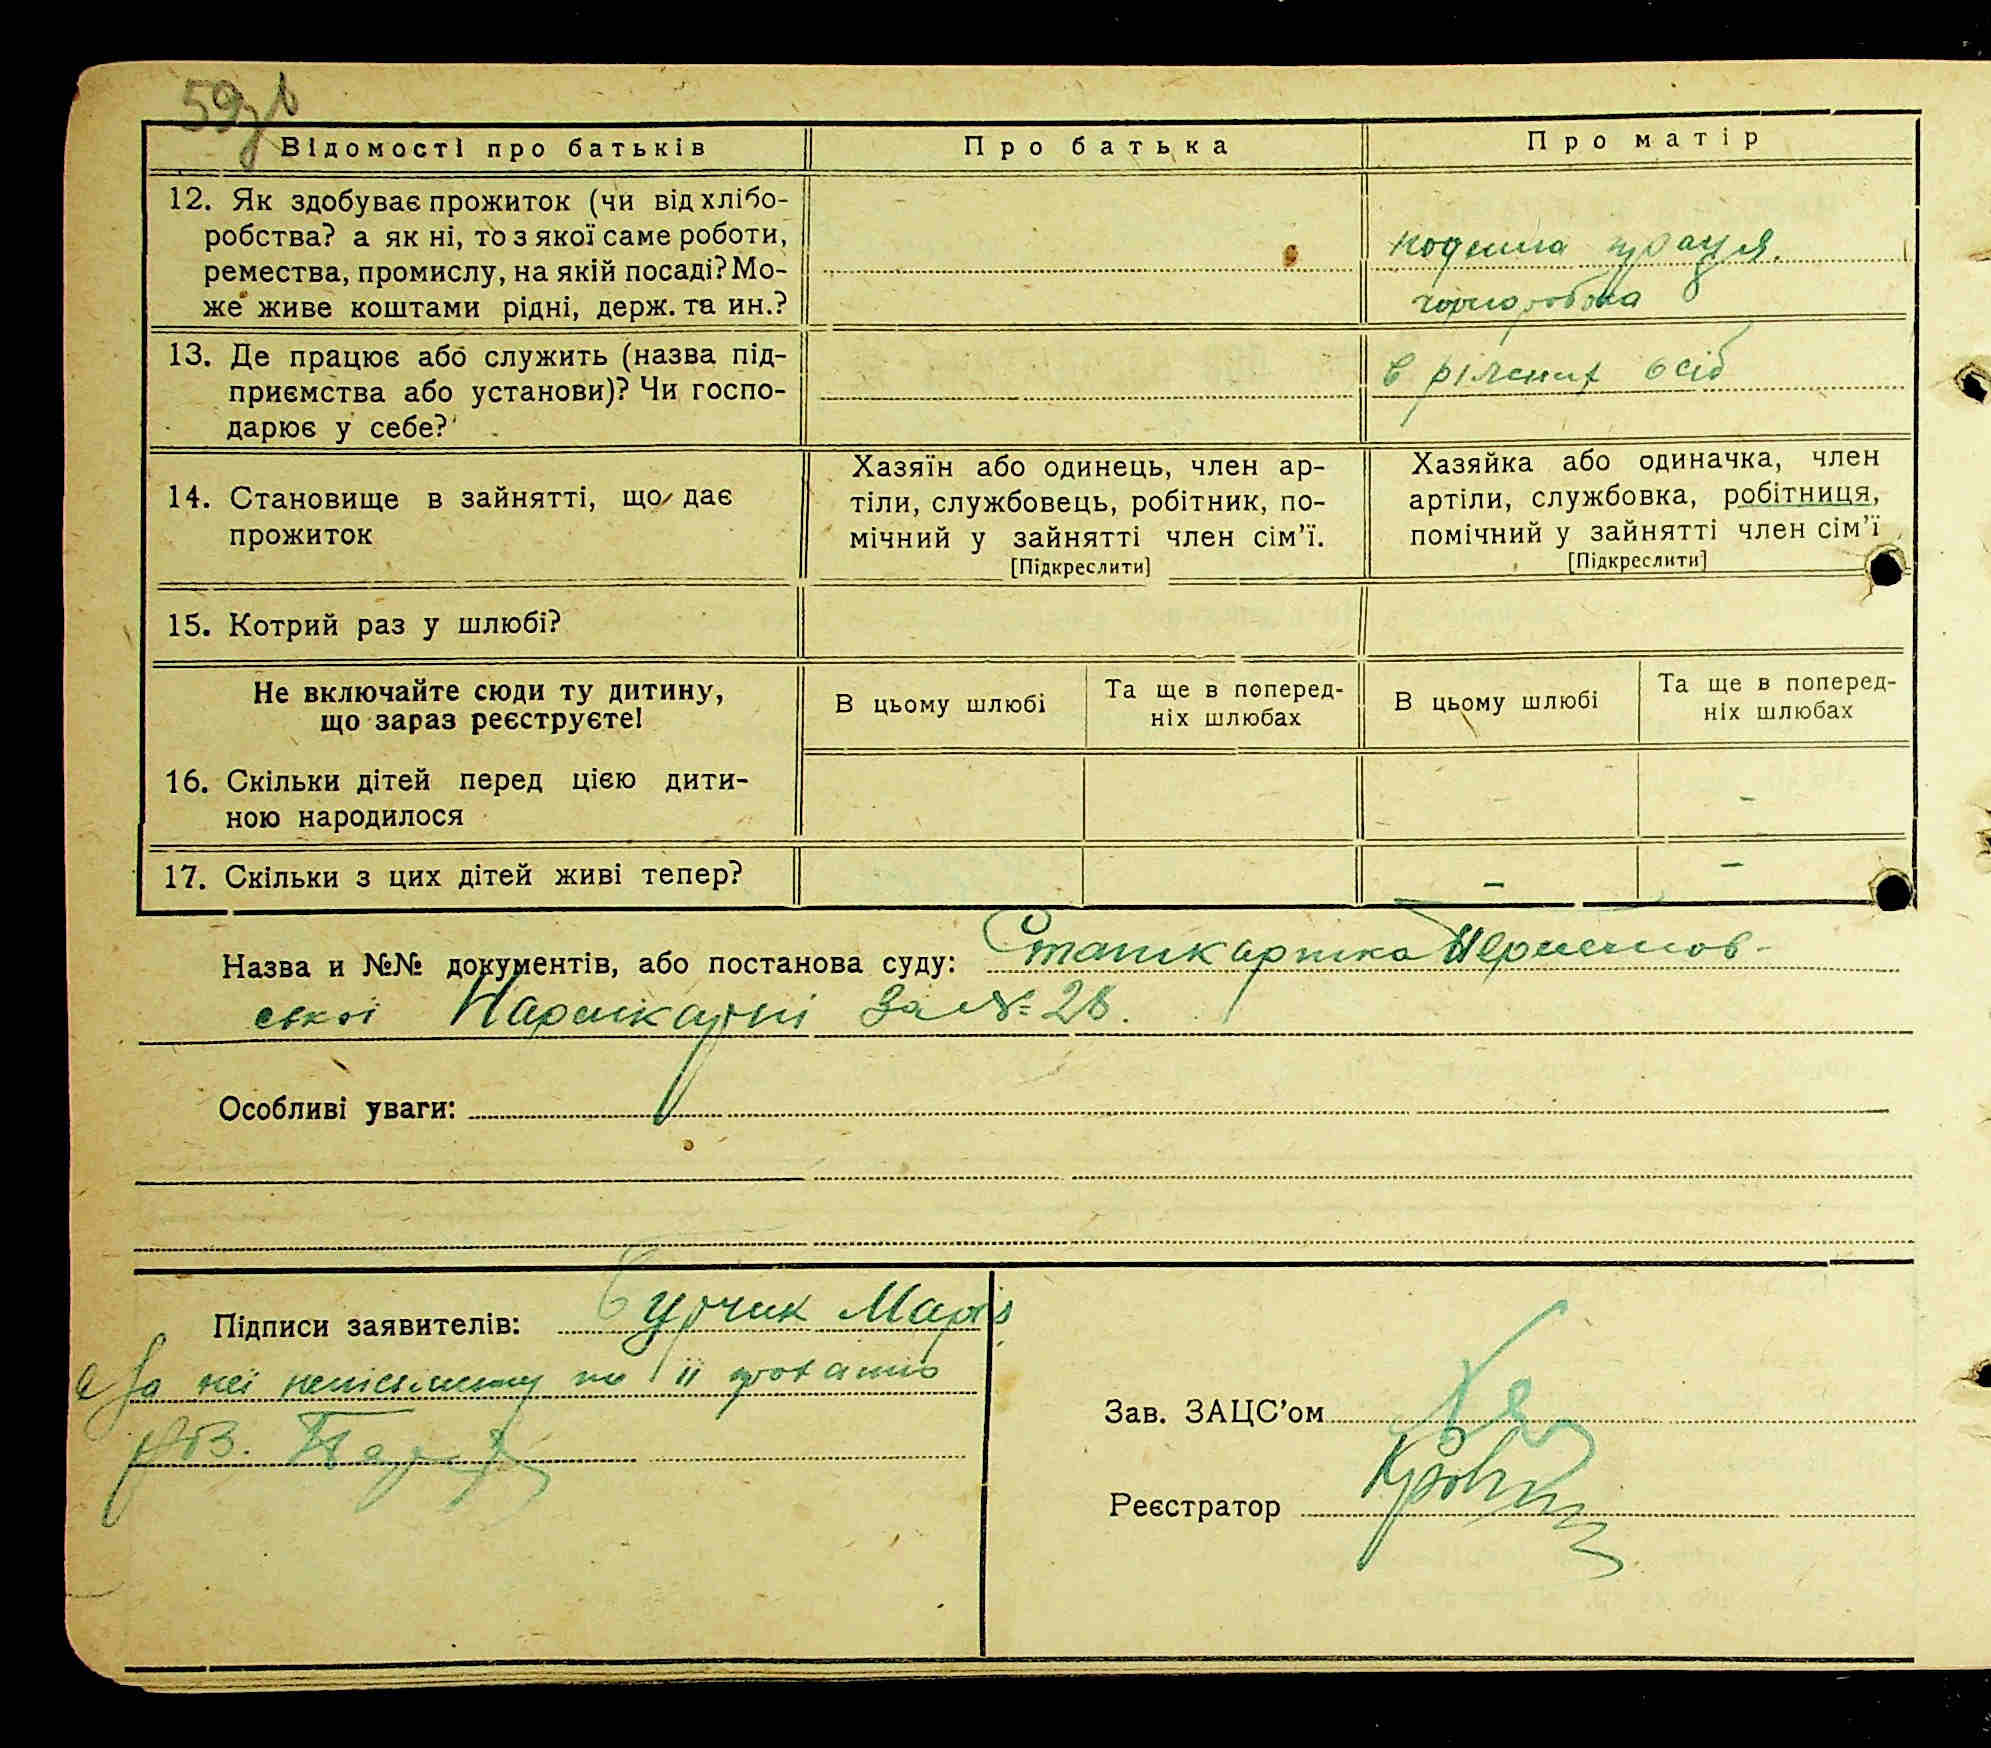 59зв
Відомості про батьків
Про батька
Про матір
12. Як здобуває прожиток (чи від хлібо-
робства? а як ні, то з якої саме роботи,
ремества, промислу, на якій посаді? Мо-
же живе коштами рідні, держ. та ин.?
поденна праця.
чорноробка
13. Де працює або служить (назва під-
приємства або установи)? Чи госпо-
дарює у себе?
в різних осіб
14. Становище в зайнятті, що дає
прожиток
Хазяїн або одинець, член ар-
тіли, службовець, робітник, по-
мічний у зайнятті член сім'ї.
[Підкреслити]
Хазяйка або одиначка, член
артіли, службовка, робітниця,
помічний у зайнятті член сім'ї
[Підкреслити]
15. Котрий раз у шлюбі?
Не включайте сюди ту дитину,
що зараз реєструєте!
В цьому шлюбі
Та ще в поперед-
ніх шлюбах
В цьому шлюбі
Та ще в поперед-
ніх шлюбах
16. Скільки дітей перед цією дити-
ною народилося
– –
17. Скільки з цих дітей живі тепер?
– –
Назва и №№ документів, або постанова суду:
ської за № 28.
Особливі уваги:
Підписи заявителів: Марія
за неї неписьменну по її
Зав. ЗАЦС'ом
Реєстратор